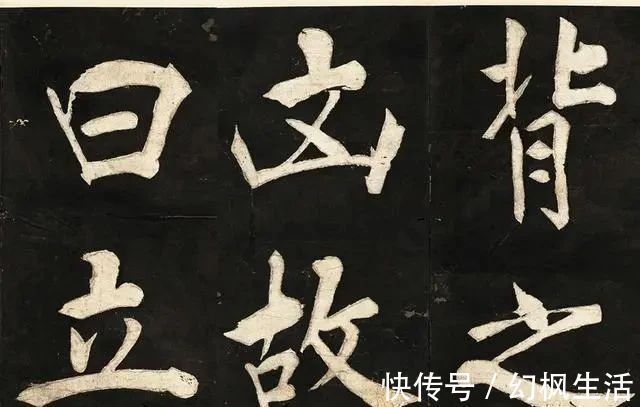 背之
㐫故
曰立
快传号/幻枫生活